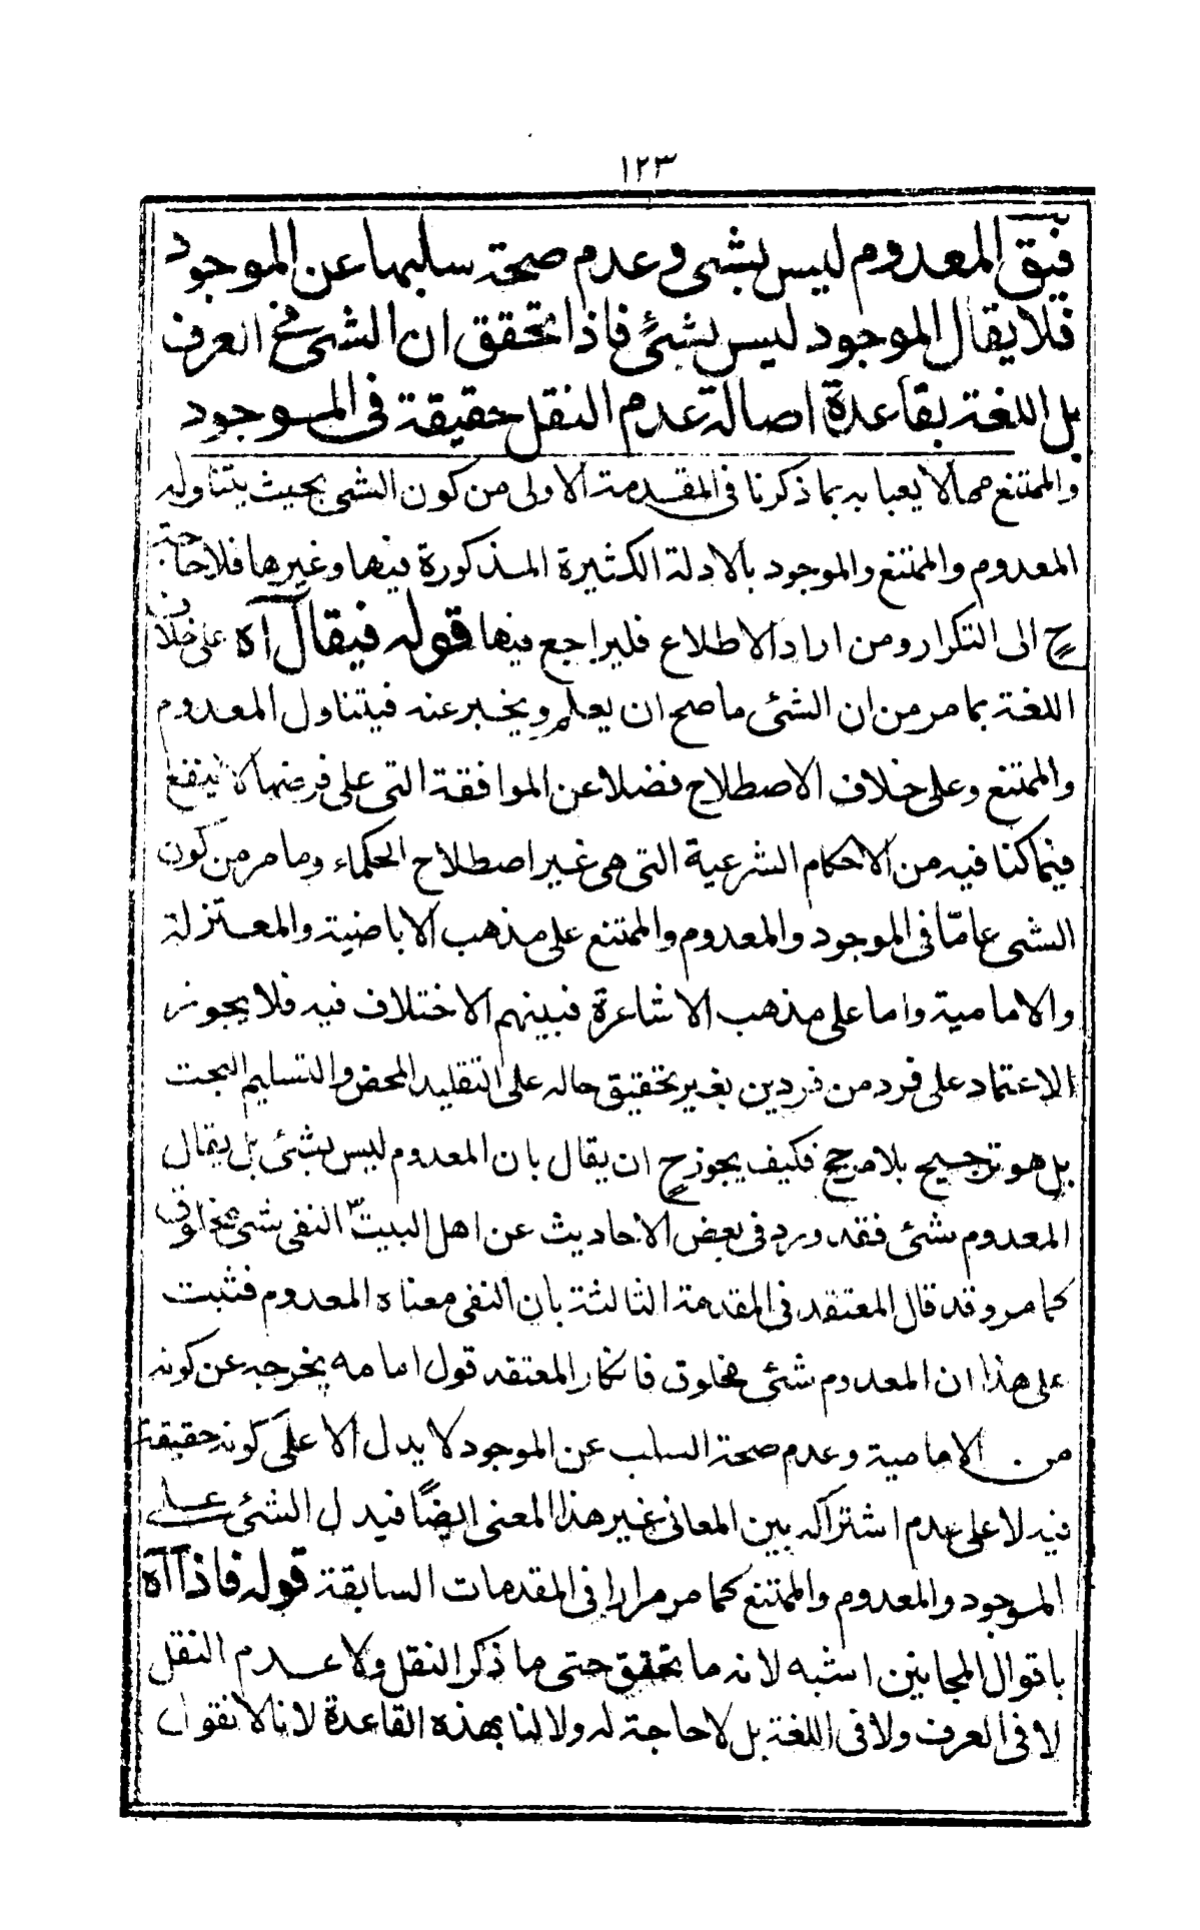 ١٢٣
فیق المعدوم لیس بشیٔ وعدم صحة سلبها عن الموجود
فلا یقال الموجود لیس بشیٔ فاذا تحقق ان الشیٔ فی العرف
بل اللغة بقاعدة اصالة عدم النقل حقیقة فی الموجود
والممتنع مما لا یعبا به بما ذکرنا فی المقدمة الاولی من کون الشیٔ بحیث یتناوله
المعدوم والممتنع والموجود بالادلة الکثیرة المذکورة فیها وغیرها فلا حاجة
ح الی التکرار ومن اراد الاطلاع فلیراجع فیها قوله فیقال آه علی خلاف
اللغة بما مر من ان الشیٔ ما صح ان یعلم ویخبر عنه فیتناول المعدوم
والممتنع وعلی خلاف الاصطلاح فضلا عن الموافقة التی علی فرضها لا ینفع
فیما کنا فیه من الاحکام الشرعیة التی هی غیر اصطلاح الحکماء وما مر من کون
الشیٔ عامّا فی الموجود والمعدوم والممتنع علی مذهب الاباضیة والمعتزلة
والامامیة واما علی مذهب الاشاعرة فبینهم الاختلاف فیه فلا یجوز
الاعتماد علی فرد من فردین بغیر تحقیق حاله علی التقلید المحض والتسلیم البحت
بل هو ترجیح بلا مرجح فکیف یجوز ح ان یقال بان المعدوم لیس بشیٔ بل یقال
المعدوم شیٔ فقد ورد فی بعض الاحادیث عن اهل البیت النفی شیٔ مخلوق
کما مر وقد قال المعتقد فی المقدمة الثالثة بان النفی معناه المعدوم فثبت
علی هذا ان المعدوم شیٔ مخلوق فانکار المعتقد قول امامه یخرجه عن کونه
من الامامیة وعدم صحة السلب عن الموجود لا یدل الا علی کونه حقیقة
فیه لا علی عدم اشتراکه بین المعانی غیر هذا المعنی ایضًا فیدل الشیٔ علی
الموجود والمعدوم والممتنع کما مر مرارا فی المقدمات السابقة قوله فاذا آه
باقوال المجانین اشبه لانه ما تحقق حتی ما ذکر النقل ولا عدم النقل
لا فی العرف ولا فی اللغة بل لا حاجة له ولا لنا بهذه القاعدة لانا لا نقول